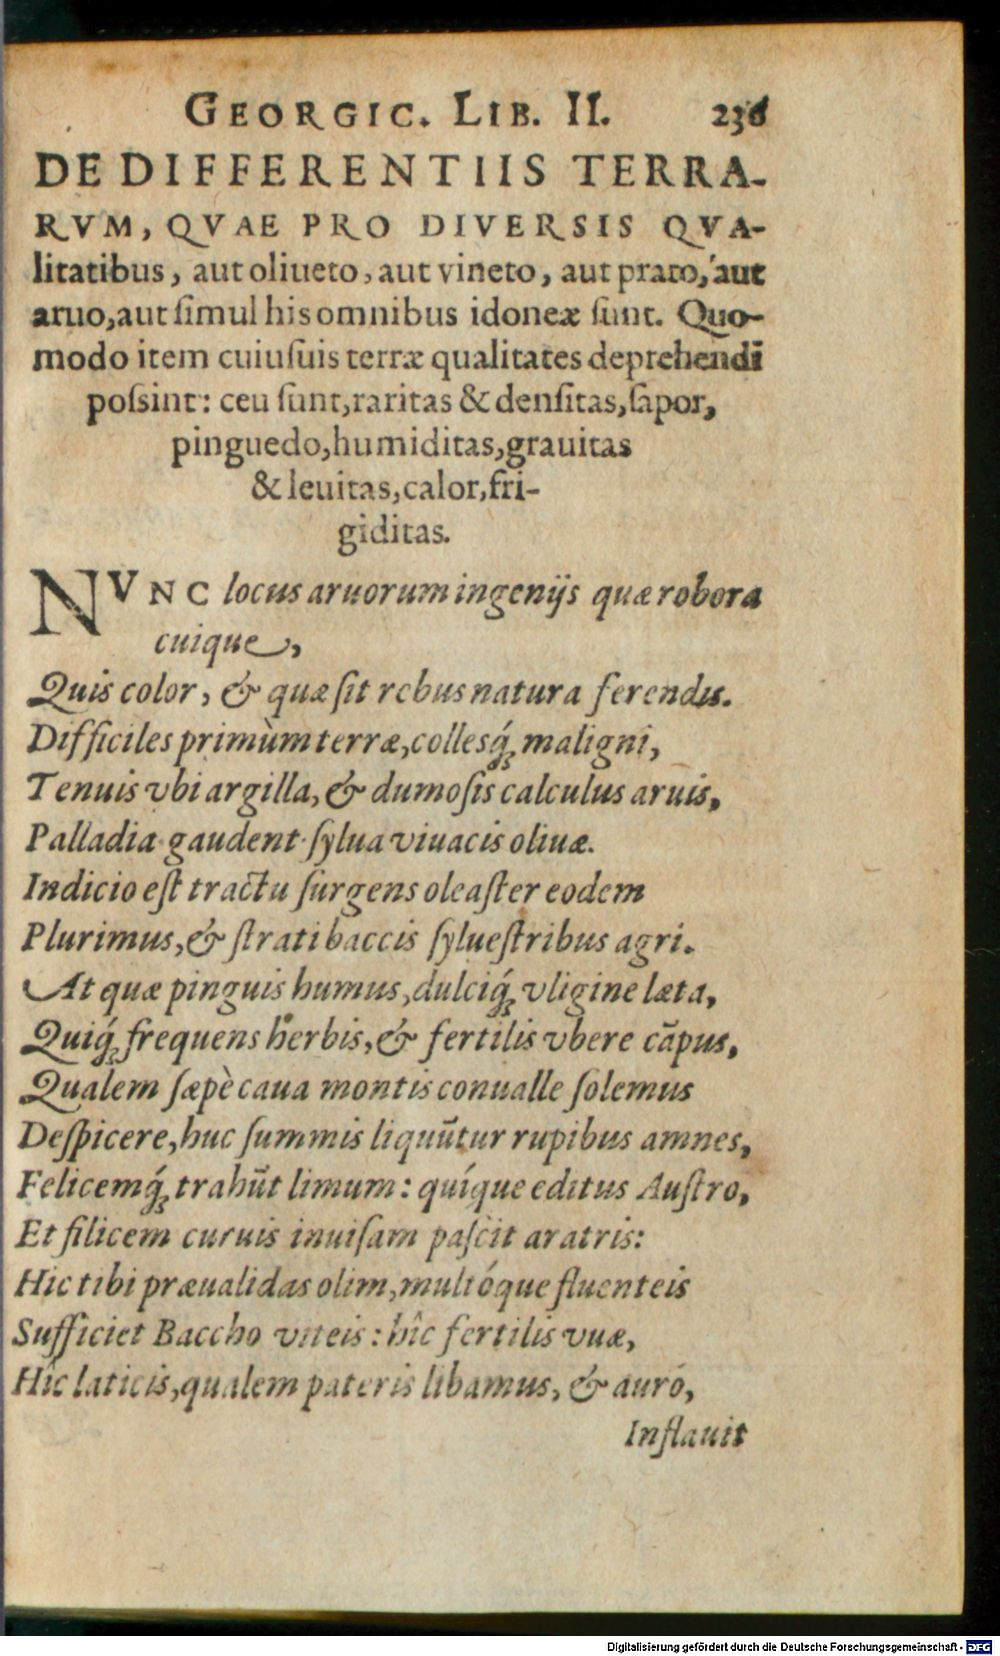 GEORGIC. LIB. II. 236
DE DIFFERENTIIS TERRA-
RVM, QVAE PRO DIVERSIS QVA-
litatibus, aut oliueto, aut vineto, aut prato, aut
aruo, aut ſimul his omnibus idoneæ ſunt. Quo-
modo item cuiuſuis terræ qualitates deprehendi
poſsint: ceu ſunt, raritas & denſitas, ſapor,
pinguedo, humiditas, grauitas
& leuitas, calor, fri-
giditas.
NVNC locus aruorum ingenijs quæ robora
cuique,
Quis color, & quæ ſit rebus natura ferendis.
Difficiles primùm terræ, collesq́; maligni,
Tenuis vbi argilla, & dumoſis calculus aruis,
Palladia gaudent ſylua viuacis oliuæ.
Indicio eſt tractu ſurgens oleaſter eodem
Plurimus, & ſtrati baccis ſylueſtribus agri.
At quæ pinguis humus, dulciq́; vligine læta,
Quiq́; frequens herbis, & fertilis vbere cāpus,
Qualem ſæpè caua montis conualle ſolemus
Deſpicere, huc ſummis liquūtur rupibus amnes,
Felicemq́; trahūt limum: quíque editus Auſtro,
Et filicem curuis inuiſam paſcit aratris:
Hic tibi præualidas olim, multóque fluenteis
Sufficiet Baccho viteis: hîc fertilis vuæ,
Hîc laticis, qualem pateris libamus, & auro,
Inflauit
Digitalisierung gefördert durch die Deutsche Forschungsgemeinschaft - DFG